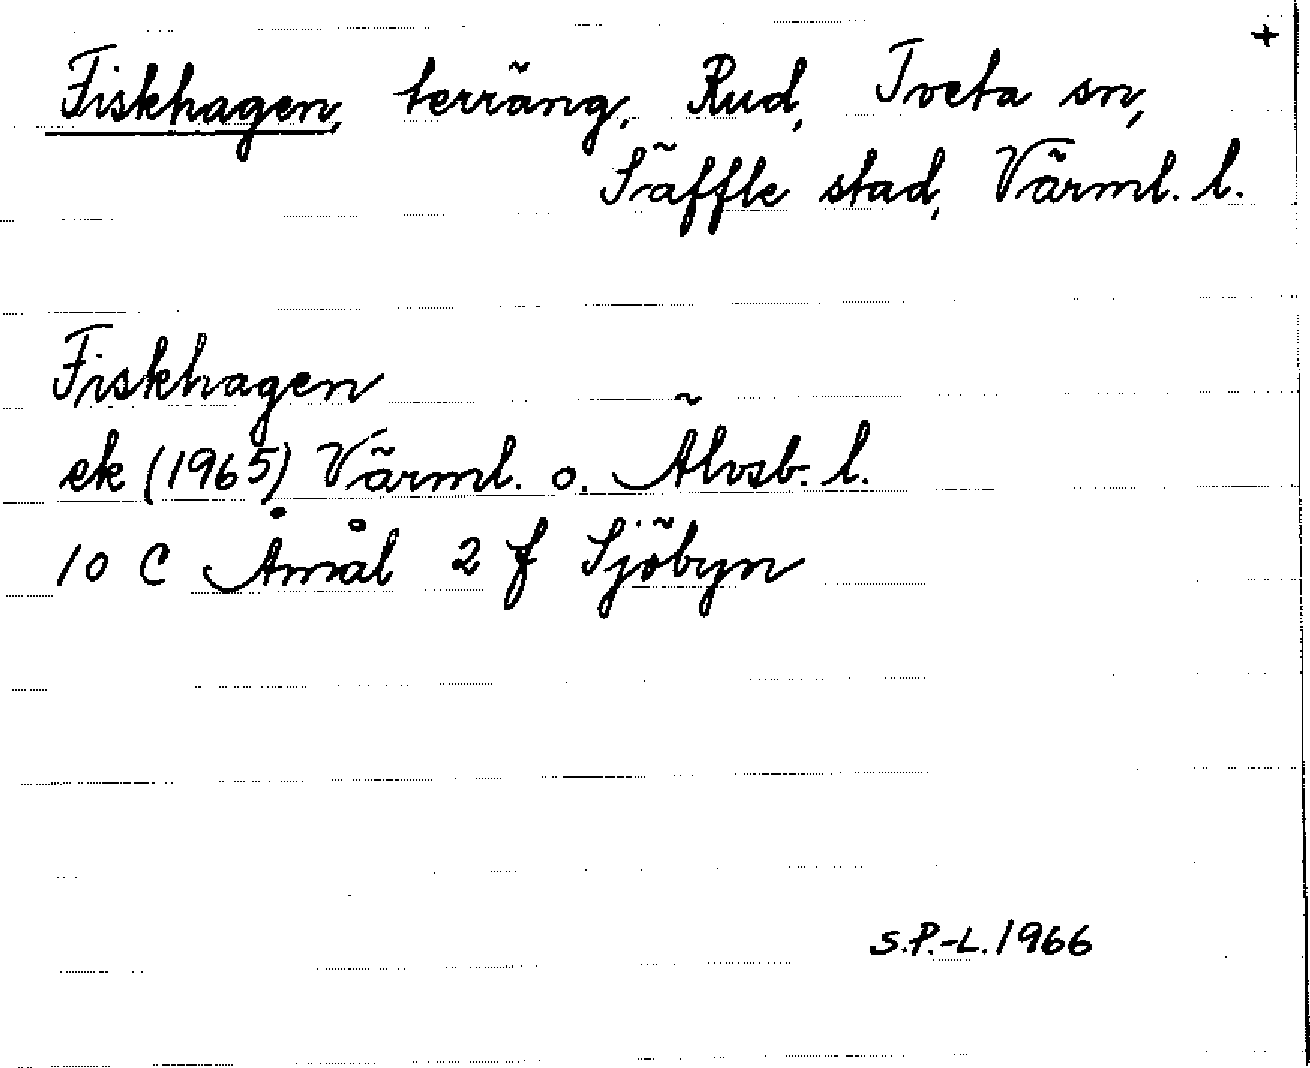 +
Fiskhagen, terräng, Rud, Tveta sn,
Säffle stad, Värml. l.
Fiskhagen
ek (1965) Värml. o. Älvsb. l.
10 C Åmål 2 f Sjöbyn
S.P.-L. 1966